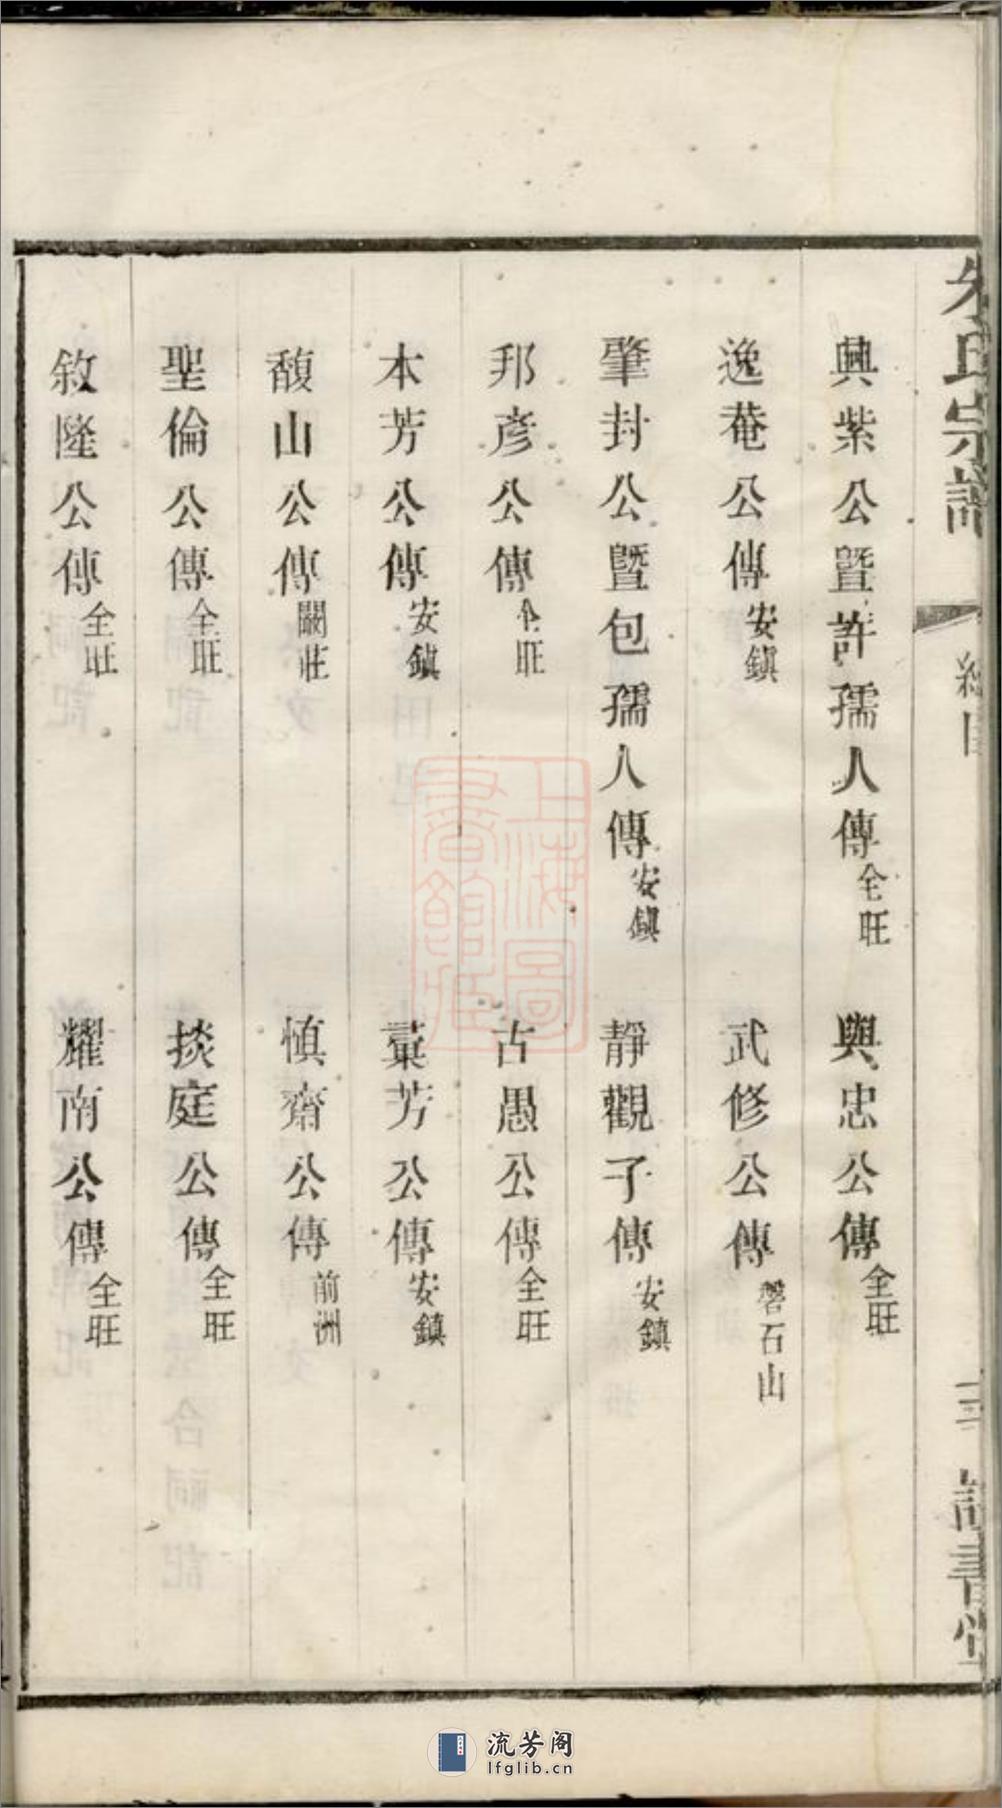 朱氏宗譜
總目
讀書堂
興紫公暨許孺人傳 仝旺
興忠公傳 仝旺
逸菴公傳 安鎮
武修公傳 磬石山
肇封公暨包孺人傳 安鎮
靜觀子傳 安鎮
邦彥公傳 仝旺
古愚公傳 仝旺
本芳公傳 安鎮
藁芳公傳 安鎮
馥山公傳 闕莊
慎齋公傳 前洲
聖倫公傳 仝旺
掞庭公傳 仝旺
敘隆公傳 仝旺
耀南公傳 仝旺
上海圖書館藏
流芳阁
lfglib.cn